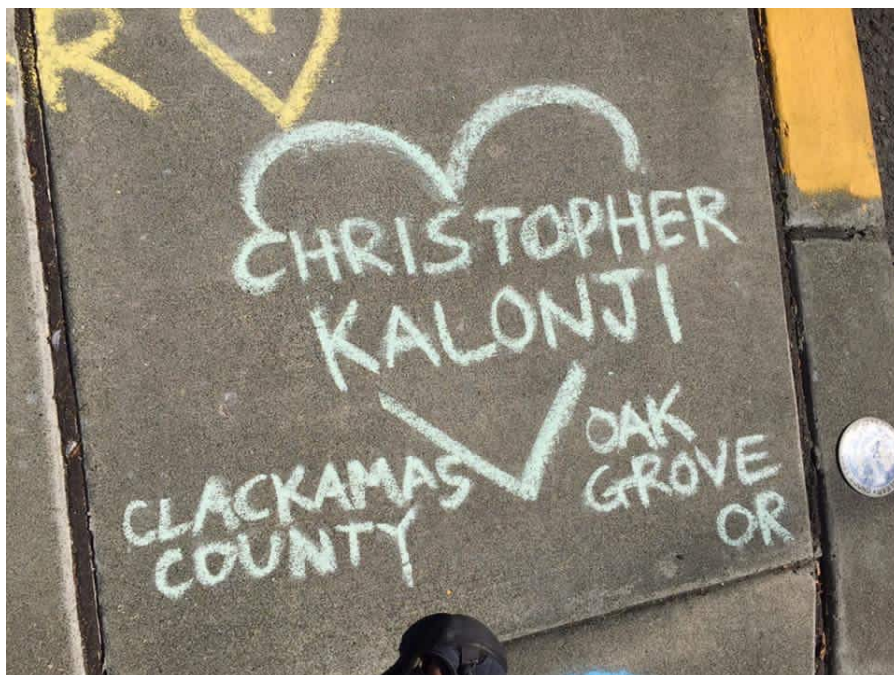 R
CHRISTOPHER
KALONJI
CLACKAMAS
COUNTY
OAK
GROVE
OR